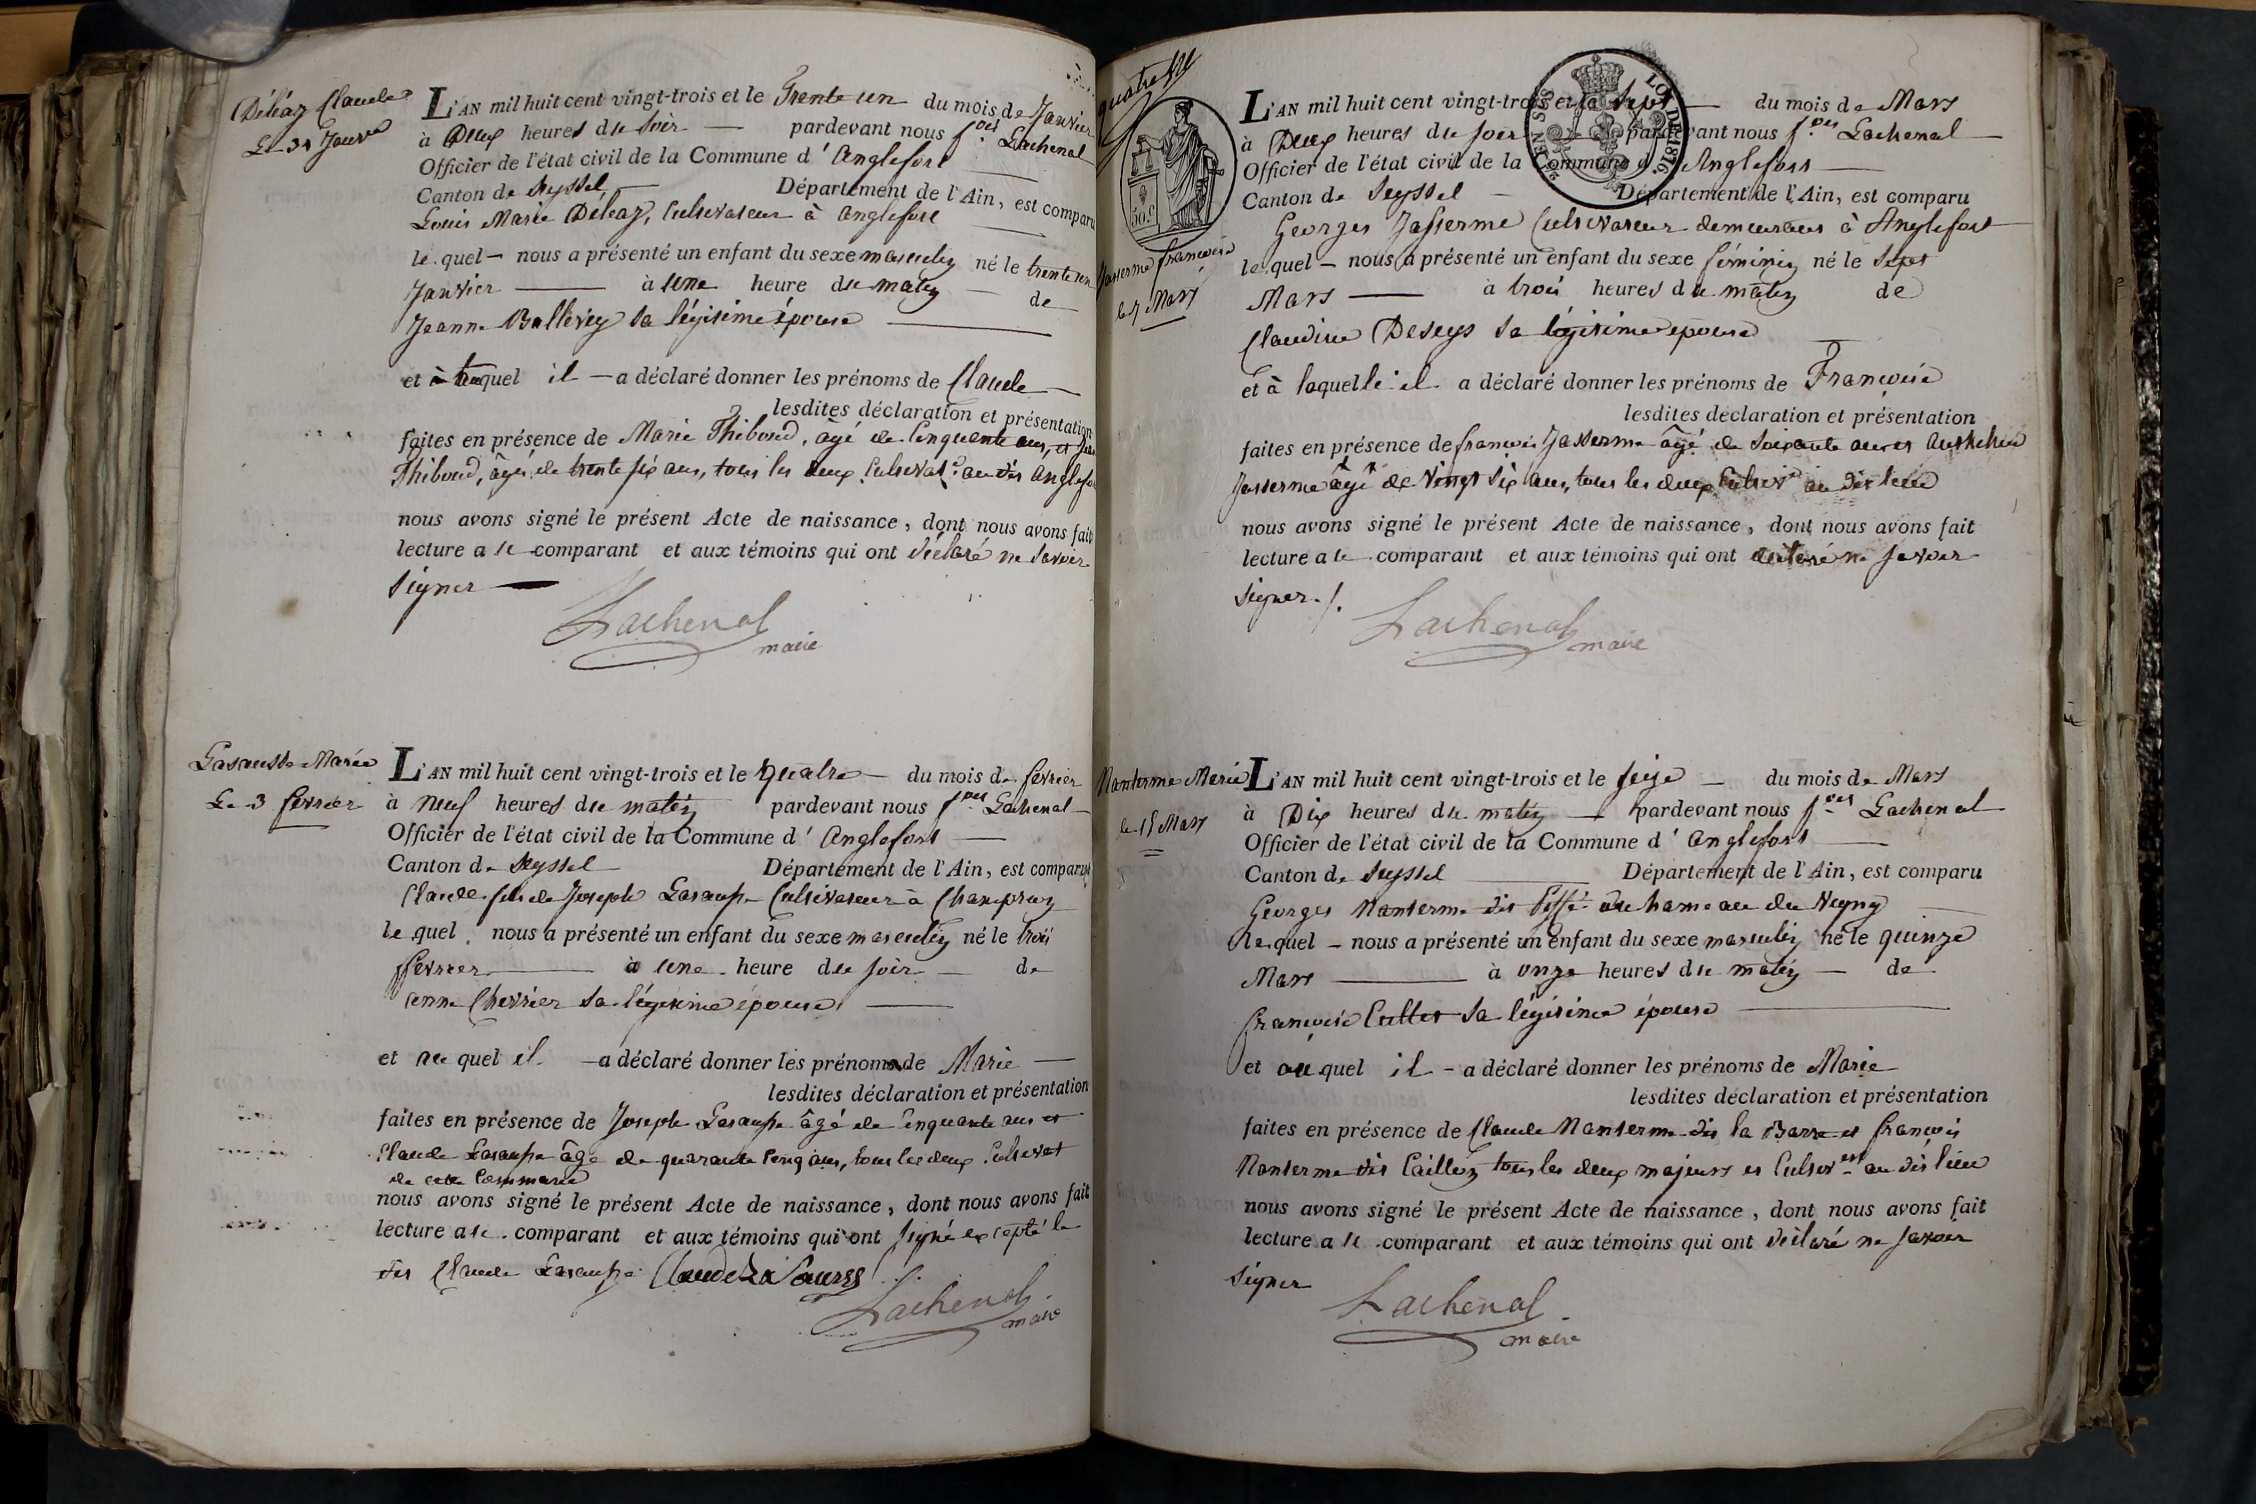 Déléaz Claude
Le 31 Janv.
L'AN mil huit cent vingt-trois et le Trente un du mois de Janvier
à Deux heures du soir — pardevant nous f.ois Lachenal
Officier de l'état civil de la Commune d' Anglefort
Canton de Seyssel — Département de l'Ain, est comparu
Louis Marie Déléaz, Cultivateur à Anglefort
le quel — nous a présenté un enfant du sexe masculin né le trente un
Janvier — à une heure du matin — de
Jeanne Ballivey sa légitime épouse
et auquel il — a déclaré donner les prénoms de Claude
lesdites déclaration et présentation
faites en présence de Marie Thiboud, âgé de Cinquante ans, et
Thiboud, âgé de trente six ans, tous les deux Cultivat. au dit Anglefort
nous avons signé le présent Acte de naissance, dont nous avons fait
lecture a le comparant et aux témoins qui ont déclaré ne savoir
signer —
Lachenal
maire
Lasausse Marie
Le 3 fevrier
L'AN mil huit cent vingt-trois et le Quatre — du mois de fevrier
à Neuf heures du matin pardevant nous f.ois Lachenal
Officier de l'état civil de la Commune d' Anglefort —
Canton de Seyssel — Département de l'Ain, est comparu
Claude fils de Joseph Lasausse Cultivateur à Champriond
le quel nous a présenté un enfant du sexe masculin né le trois
fevrier — à une heure du soir — de
anne Chevrier sa légitime épouse —
et au quel il — a déclaré donner les prénoms de Marie —
lesdites déclaration et présentation
faites en présence de Joseph Lasausse âgé de cinquante ans et
Claude Lasausse âgé de quarante cinq ans, tous les deux Cultivat
de cette Commune
nous avons signé le présent Acte de naissance, dont nous avons fait
lecture a le comparant et aux témoins qui ont signé excepté le
dit Claude Lasausse Claude La Sausse
Lachenal
maire
quatre
50 C.
LOI DE 1816.
Jasserme françoise
le 7 Mars
L'AN mil huit cent vingt-trois et le Sept — du mois de Mars
à Deux heures du soir pardevant nous f.ois Lachenal —
Officier de l'état civil de la Commune d' Anglefort —
Canton de Seyssel — Département de l'Ain, est comparu
Georges Jasserme Cultivateur demeurant à Anglefort
le quel — nous a présenté un enfant du sexe féminin né le sept
Mars — à trois heures du matin de
Claudine Deseys sa légitime épouse —
et à laquelle il a déclaré donner les prénoms de Françoise
lesdites déclaration et présentation
faites en présence de françois Jasserme âgé de soixante ans et Anthelme
Jasserme âgé de Vingt six ans, tous les deux Cultiv. au dit lieu
nous avons signé le présent Acte de naissance, dont nous avons fait
lecture a le comparant et aux témoins qui ont déclaré ne savoir
signer ./.
Lachenal
maire
Nanterme Marie
le 15 Mars
L'AN mil huit cent vingt-trois et le seize — du mois de Mars
à Dix heures du matin — pardevant nous f.ois Lachenal
Officier de l'état civil de la Commune d' Anglefort —
Canton de Seyssel — Département de l'Ain, est comparu
Georges Nanterme dit au hameau du
le quel — nous a présenté un enfant du sexe masculin né le quinze
Mars — à onze heures du matin — de
françoise Cullet sa légitime épouse —
et au quel il — a déclaré donner les prénoms de Marie
lesdites déclaration et présentation
faites en présence de Claude Nanterme dit la Barre et françois
Nanterme dit Cailloz tous les deux majeurs et Cultiv. au dit lieu
nous avons signé le présent Acte de naissance, dont nous avons fait
lecture a le comparant et aux témoins qui ont déclaré ne savoir
signer
Lachenal
maire